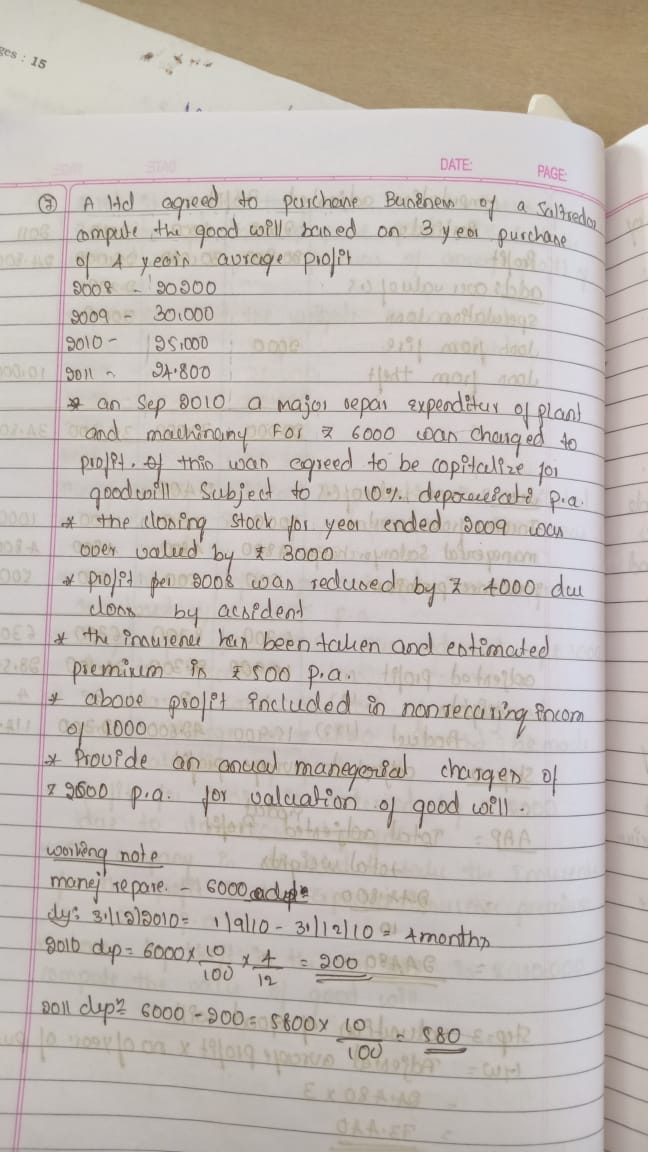 ges : 15
DATE:
PAGE:
⑦ A Hd agreed to purchane Bunenen of a Soltredor
ompute the good will baned on 3 year purchane
of 4 yearn avrage profit
2008 - 20200
2009 - 30.000
2010 - 25,000
2011 - 24.800
* an Sep 2010 a major repair expenditur of plant
and machinamy For ₹ 6000 wan charged to
profit. of thin wan egreed to be copitalize for
goodwill Subject to 10% p.a.
* the cloning stock for year ended 2009 was
over valued by ₹ 3000
* profit per 2008 was reduced by ₹ 4000 due
by acsident
* the has been taken and entimated
premium in ₹ 500 p.a.
* above profit included in nonrecuring incom
of 1000
* Provide an anual manegerial charges of
₹ 2600 p.a. for valuation of good will.
working note
repare. - 6000
31/12/2010 = 1/9/10 - 31/12/10 = 4 months
2010 dep = 6000 x 10/100 x 4/12 = 200
2011 dep = 6000 - 200 = 5800 x 10/100 = 580